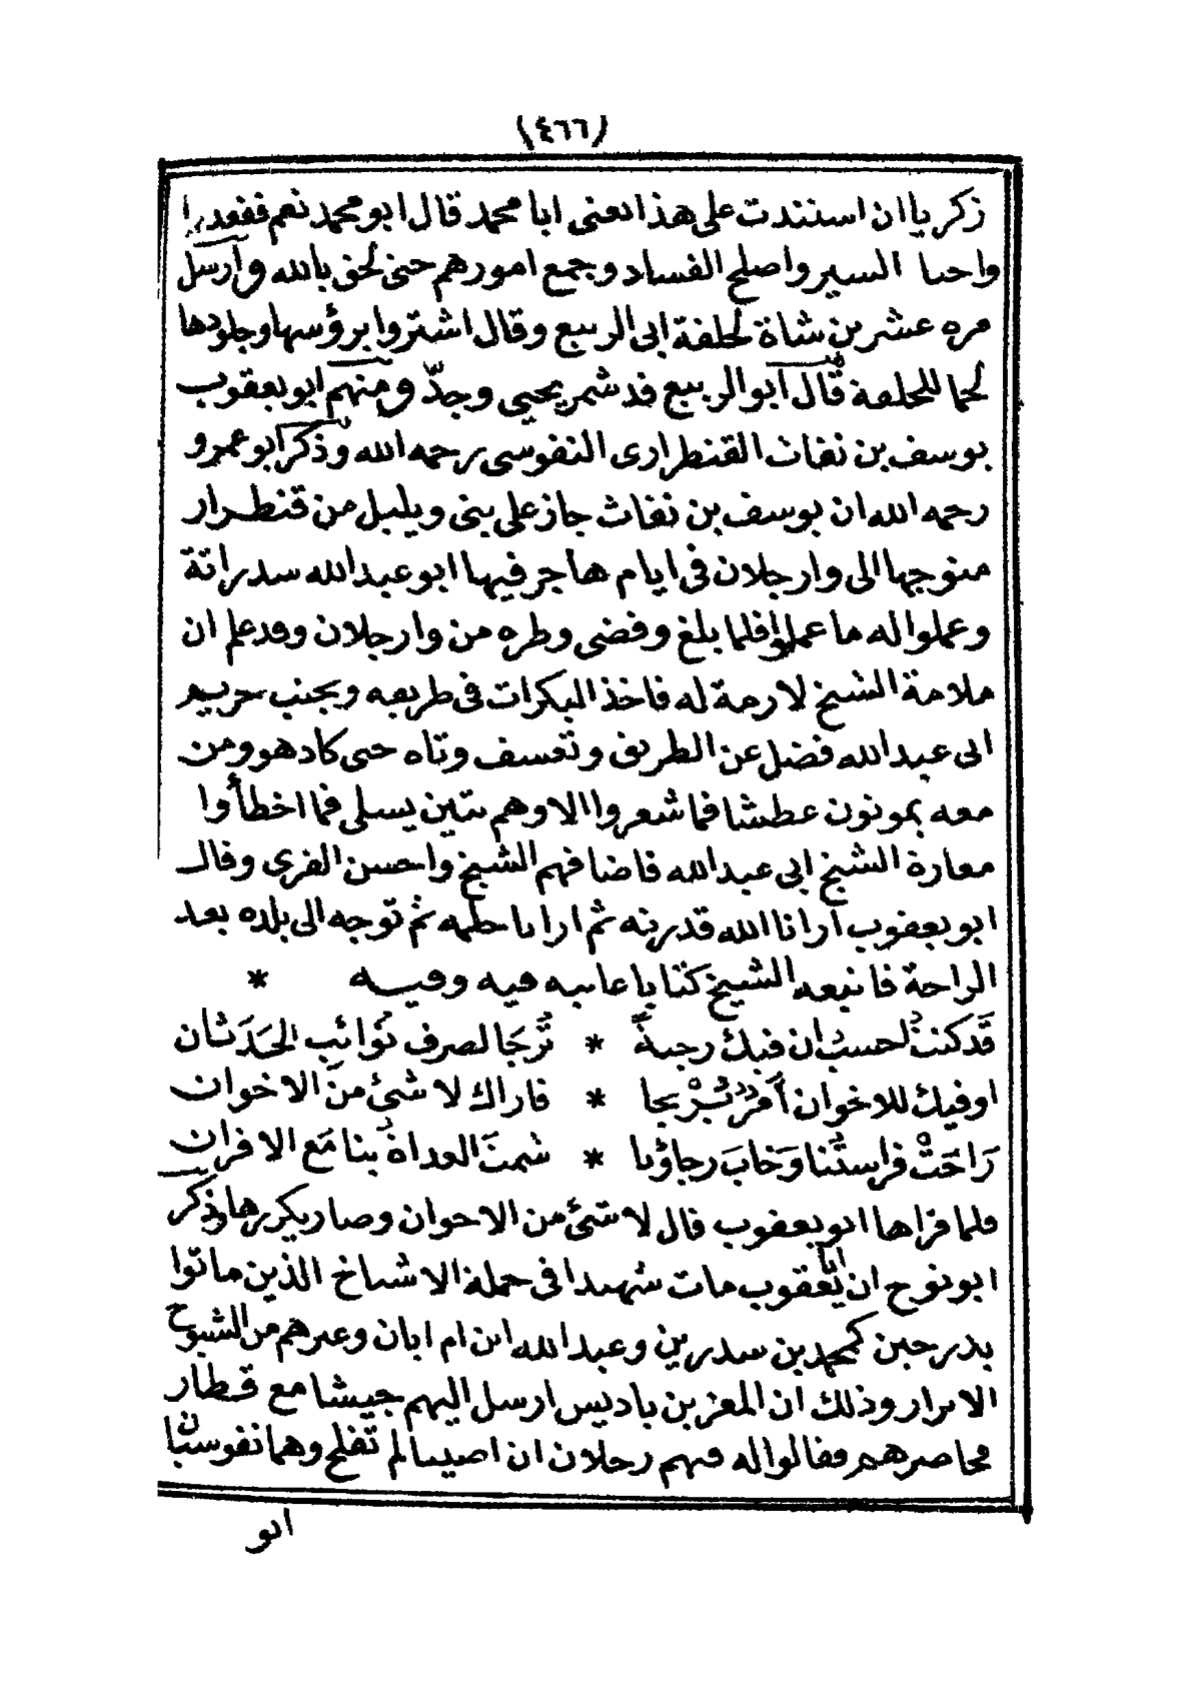 (٤٦٦)
زكرياان استندت على هذا يعنى ابا محمد قال ابو محمد نعم فقعد
واحيا السير واصلح الفساد وجمع امورهم حتى لحق بالله وارسل
مره عشرين شاة لحلقة ابى الربيع وقال اشتروا برؤسها وجلودها
لحما للحلقة قال ابو الربيع قد شمر يحيى وجدّ ومنهم ابو يعقوب
يوسف بن نفاث القنطرارى النفوسى رحمه الله وذكر ابو عمرو
رحمه الله ان يوسف بن نفاث جاز على بنى ويليل من قنطرار
متوجها الى وارجلان فى ايام هاجر فيها ابو عبد الله سدراتة
وعملوا له ما عملوا فلما بلغ وقضى وطره من وارجلان وقد علم ان
ملامة الشيخ لا رحمة له فاخذ البكرات فى طريقه ويجنب حريم
ابى عبد الله فضل عن الطريق وتعسف وتاه حتى كاد هو ومن
معه يموتون عطشا فما شعروا الا وهم بتين يسلى فما اخطأوا
مغارة الشيخ ابى عبد الله فاضافهم الشيخ واحسن القرى وقال
ابو يعقوب ارانا الله قدرته ثم ارانا حلمه ثم توجه الى بلده بعد
الراحة فاتبعه الشيخ كتابا عاتبه فيه وفيه *
قَد كنتُ لحسب ان فيك رجيةً * تُرجَا لصرف نَوائب الحَدَثان
او فيك للاخوان أمرٌ يُرْتجا * فاراك لا شئ من الاخوان
رَاحَتْ فراستُنا وَخابَ رجاؤنا * شمتَ العداة بنا مَع الاقران
فلما قراها ابو يعقوب قال لا شئ من الاخوان وصار يكررها وذكر
ابو نوح ان ابا يعقوب مات شهيدا فى جملة الاشياخ الذين ماتوا
بدرجين كمحمد بن سدرين وعبد الله ابن ام ابان وغيرهم من الشيوخ
الابرار وذلك ان المعز بن باديس ارسل اليهم جيشا مع قطار
محاصرهم وقالوا له فيهم رجلان ان اصيبا لم تفلح وهما نفوسيان
ابو